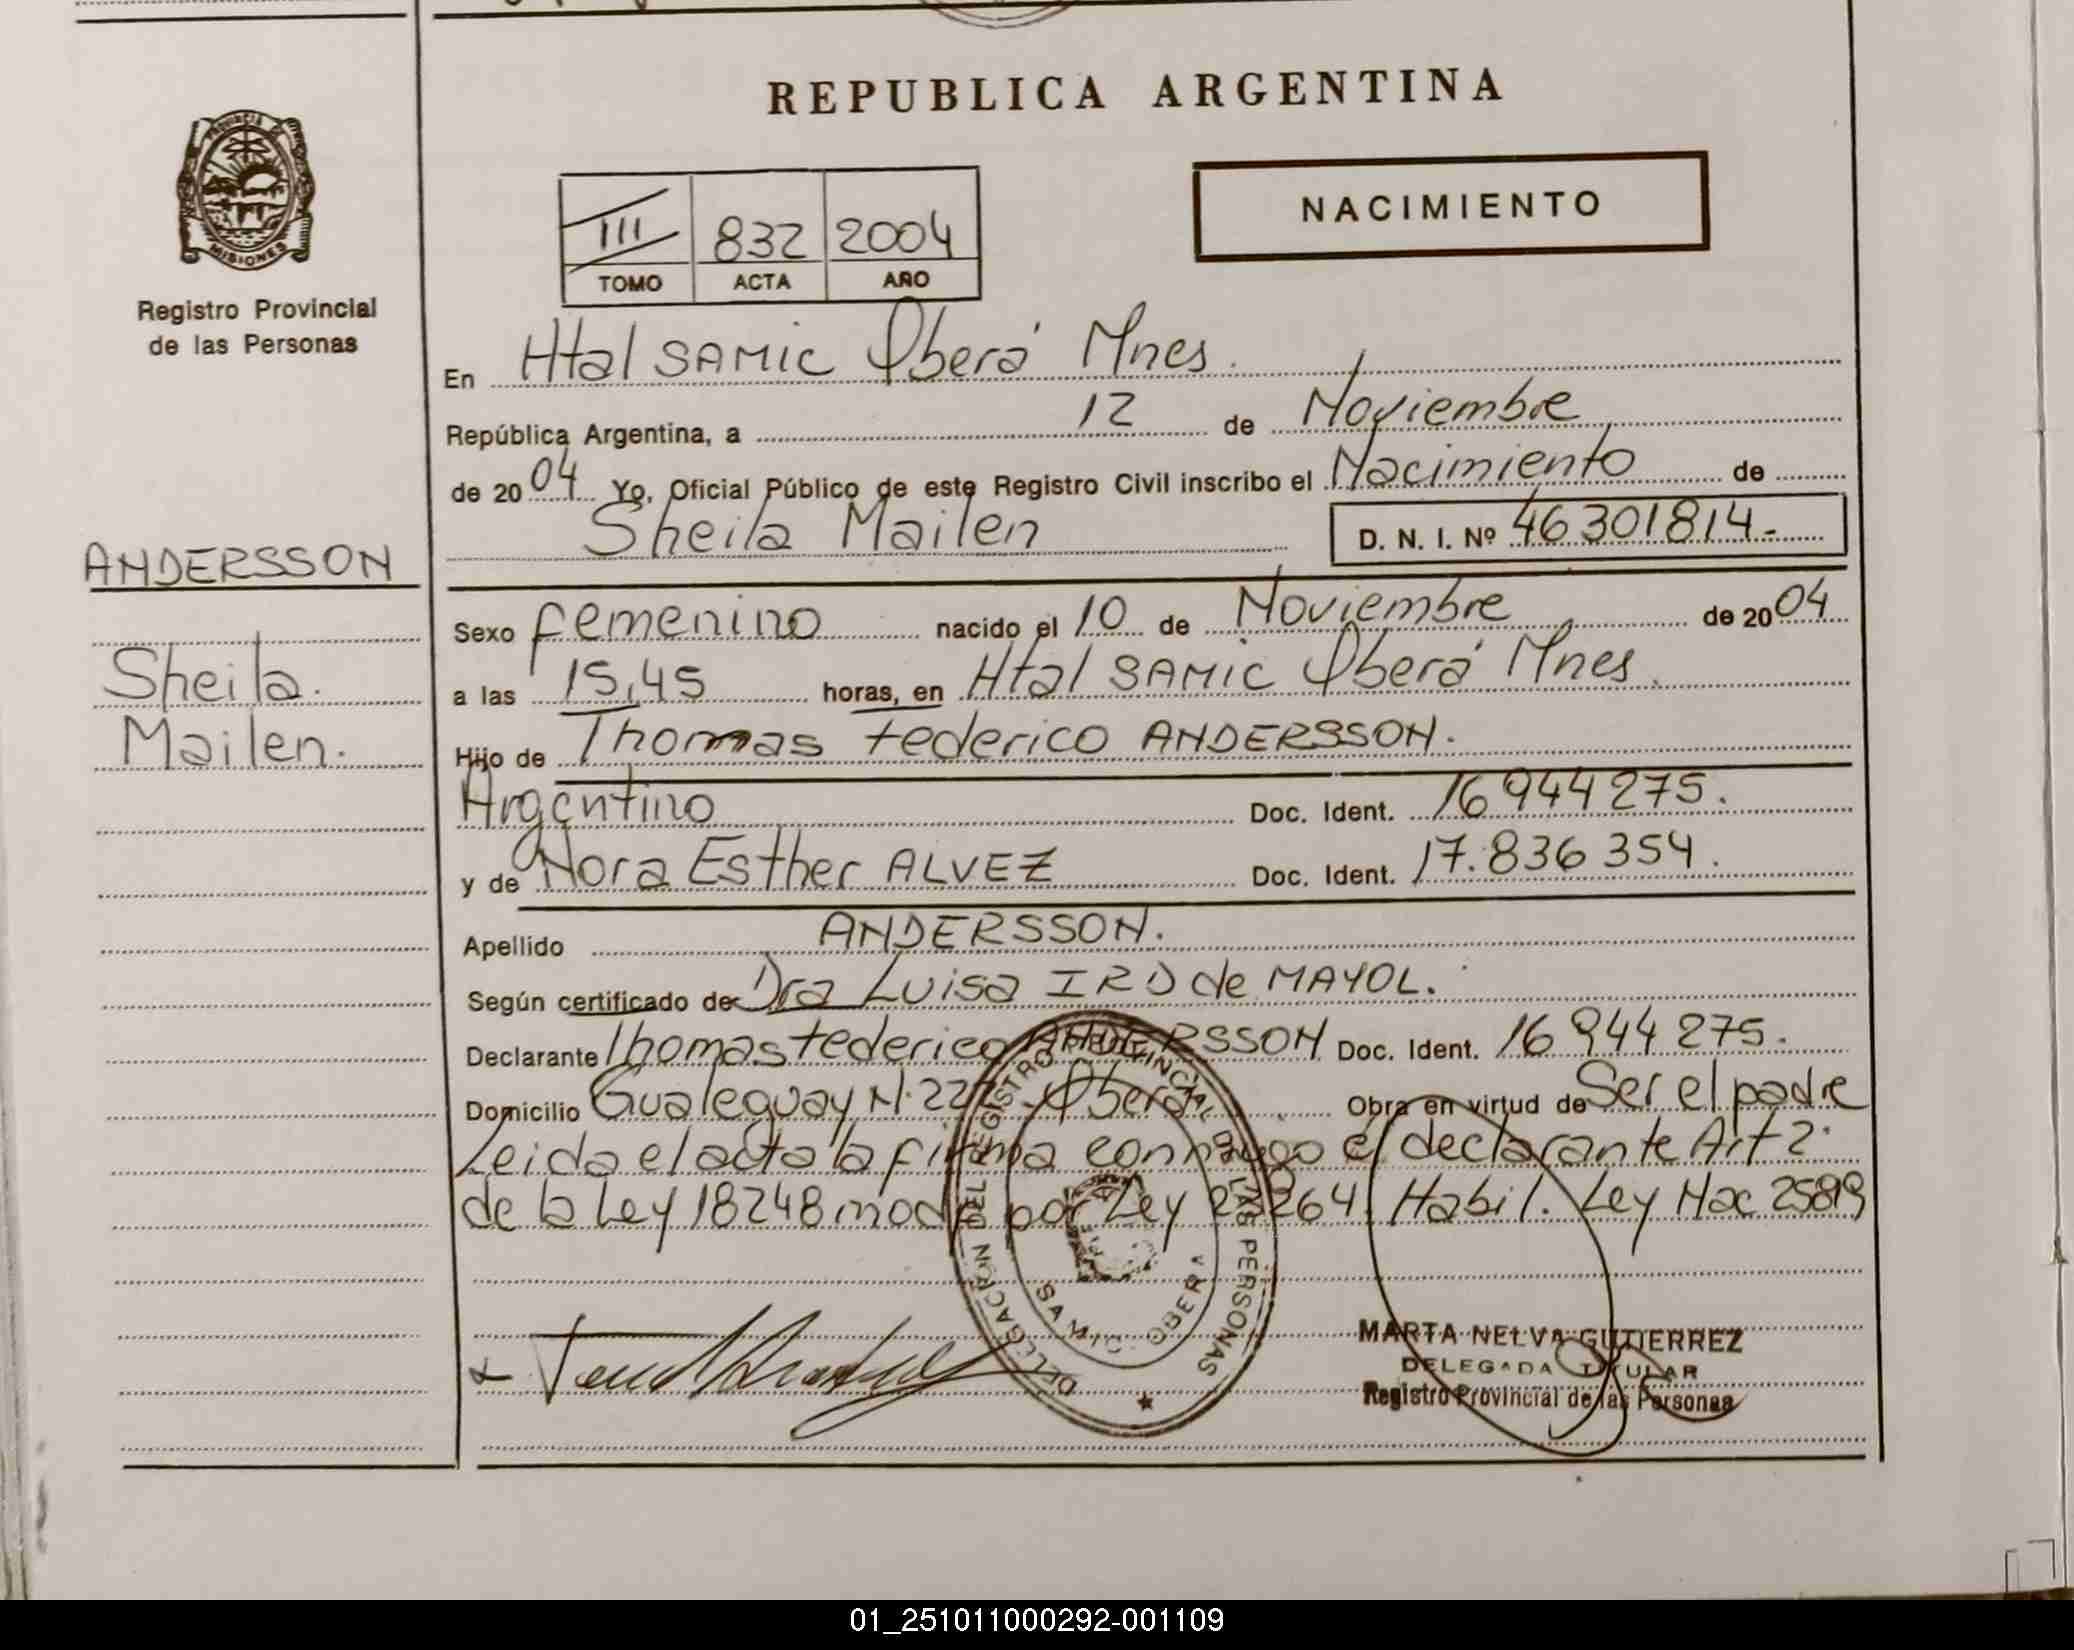 REPUBLICA ARGENTINA
PROVINCIA DE
MISIONES
Registro Provincial
de las Personas
NACIMIENTO
III 832 2004
TOMO ACTA AÑO
En Htal SAMIC Oberá Mnes.
República Argentina, a 12 de Noviembre
de 2004 Yo, Oficial Público de este Registro Civil inscribo el Nacimiento de
Sheila Mailen D. N. I. Nº 46301814.-
ANDERSSON
Sheila.
Mailen.
Sexo femenino nacido el 10 de Noviembre de 2004
a las 15,45 horas, en Htal SAMIC Oberá Mnes.
Hijo de Thomas Federico ANDERSSON.
Argentino Doc. Ident. 16944275.
y de Nora Esther ALVEZ Doc. Ident. 17.836 354.
Apellido ANDERSSON.
Según certificado de Dra Luisa IRD de MAYOL.
Declarante Thomas Federico ANDERSSON Doc. Ident. 16 944 275.
Domicilio Gualeguay N. Oberá Obra en virtud de Ser el padre
Leida el acta la firma conmigo el declarante Art 2·
de la Ley 18248 modf por Ley 23264. Habil. Ley Nac
DELEGACION DEL REGISTRO PROVINCIAL DE LAS PERSONAS
OBERA
MARTA NELVA GUTIERREZ
DELEGADA TITULAR
Registro Provincial de las Personas
01_251011000292-001109